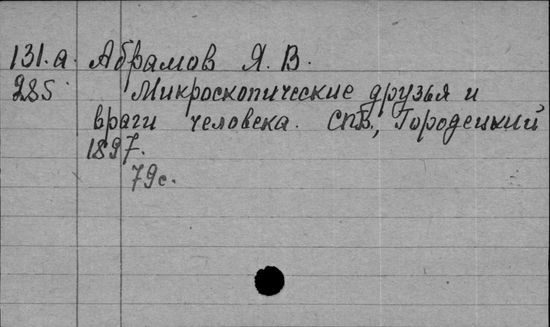 131.а. Абрамов Я. В.
285. Микроскопические друзья и
враги человека. СПб., Городецкий
1897.
79с.